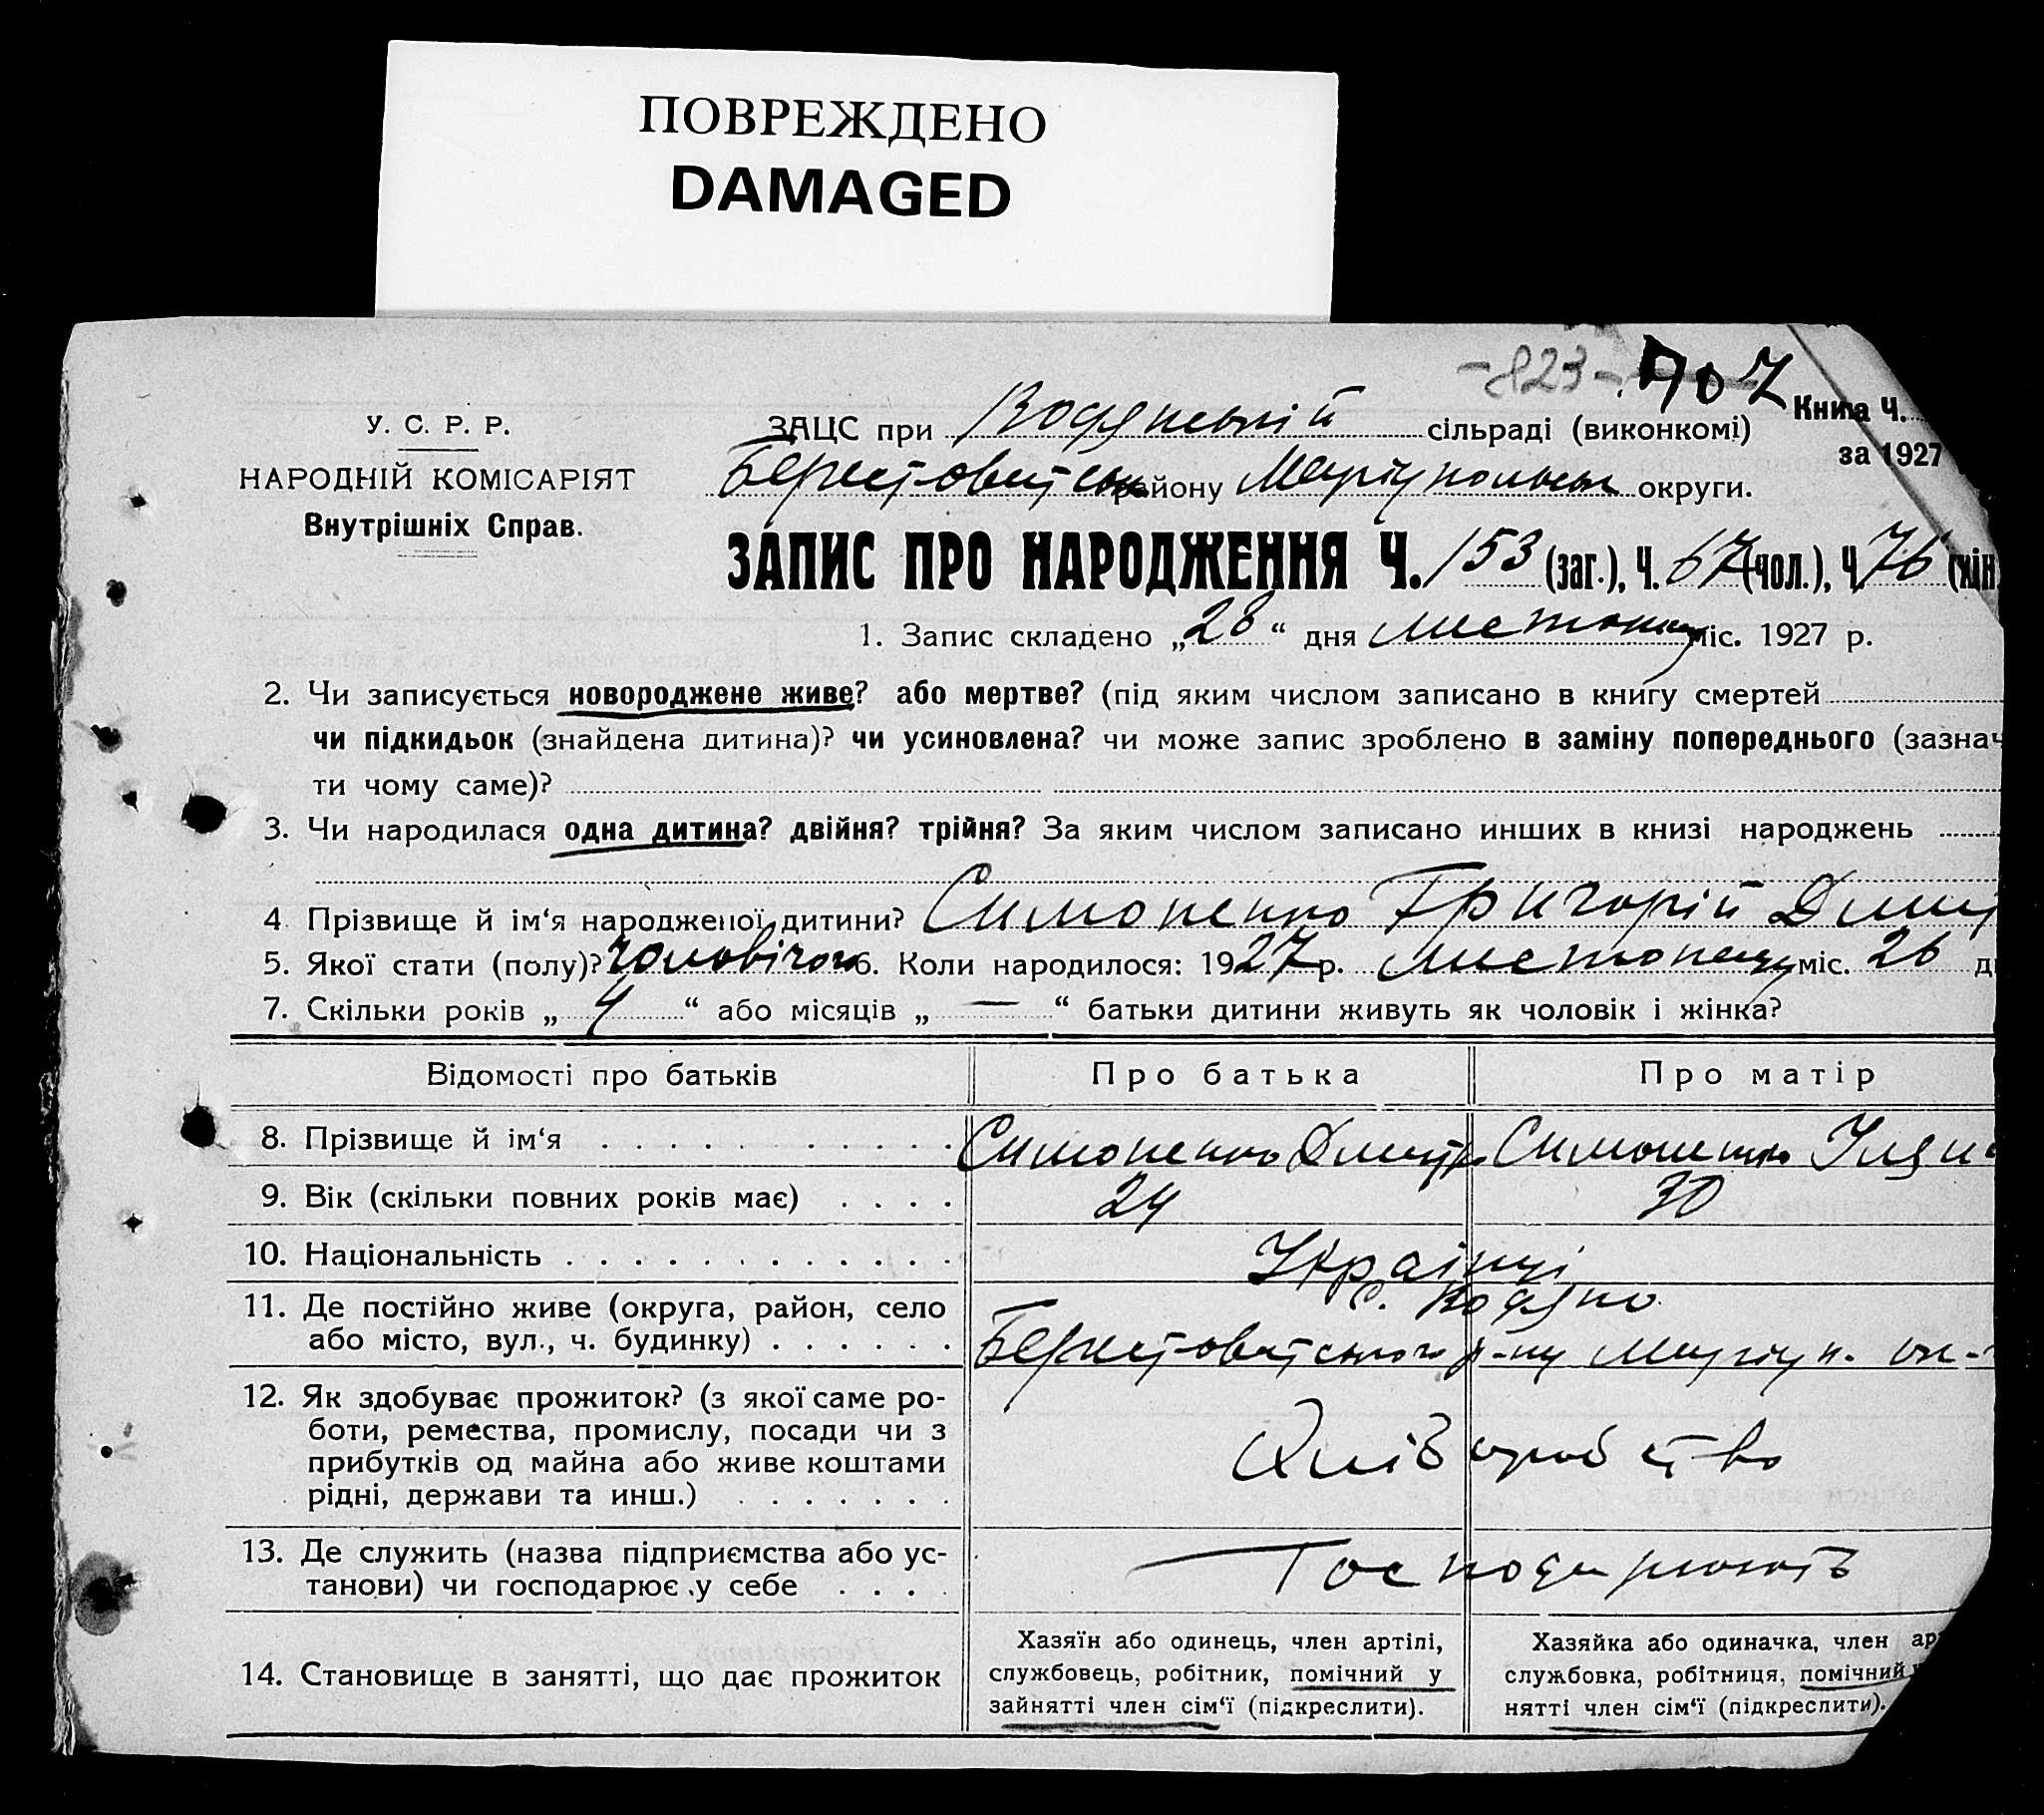 ПОВРЕЖДЕНО
DAMAGED
-823-
707
Книга Ч.
за 1927
У. С. Р. Р.
НАРОДНІЙ КОМІСАРІЯТ
Внутрішніх Справ.
ЗАЦС при Водянській сільраді (виконкомі)
Берестоватськ району Маріупольськ округи.
ЗАПИС ПРО НАРОДЖЕННЯ Ч. 153 (заг.), Ч. 67 (чол.), Ч. 76 (жін
1. Запис складено „28“ дня листопаду міс. 1927 р.
2. Чи записується новороджене живе? або мертве? (під яким числом записано в книгу смертей
чи підкидьок (знайдена дитина)? чи усиновлена? чи може запис зроблено в заміну попереднього (зазнач
ти чому саме)?
3. Чи народилася одна дитина? двійня? трійня? За яким числом записано инших в книзі народжень
4. Прізвище й ім‘я народженої дитини? Симоненко Григорій Дмит
5. Якої стати (полу)? чоловічого 6. Коли народилося: 1927 р. листопаду міс. 26 д
7. Скільки років „ 4 “ або місяців „ — “ батьки дитини живуть як чоловік і жінка?
Відомості про батьків Про батька Про матір
8. Прізвище й ім‘я Симоненко Дмитро Симоненко Уляна
9. Вік (скільки повних років має) 24 30
10. Національність Українці
11. Де постійно живе (округа, район, село с. Водяно
або місто, вул., ч. будинку) Берестоватського р-ну Маріуп. ок-
12. Як здобуває прожиток? (з якої саме ро-
боти, ремества, промислу, посади чи з
прибутків од майна або живе коштами
рідні, держави та инш.) Хліборобство
13. Де служить (назва підприємства або ус-
танови) чи господарює у себе Господарюють
14. Становище в занятті, що дає прожиток
Хазяїн або одинець, член артілі,
службовець, робітник, помічний у
зайнятті член сім‘ї (підкреслити).
Хазяйка або одиначка, член ар
службовка, робітниця, помічний
нятті член сім‘ї (підкреслити).